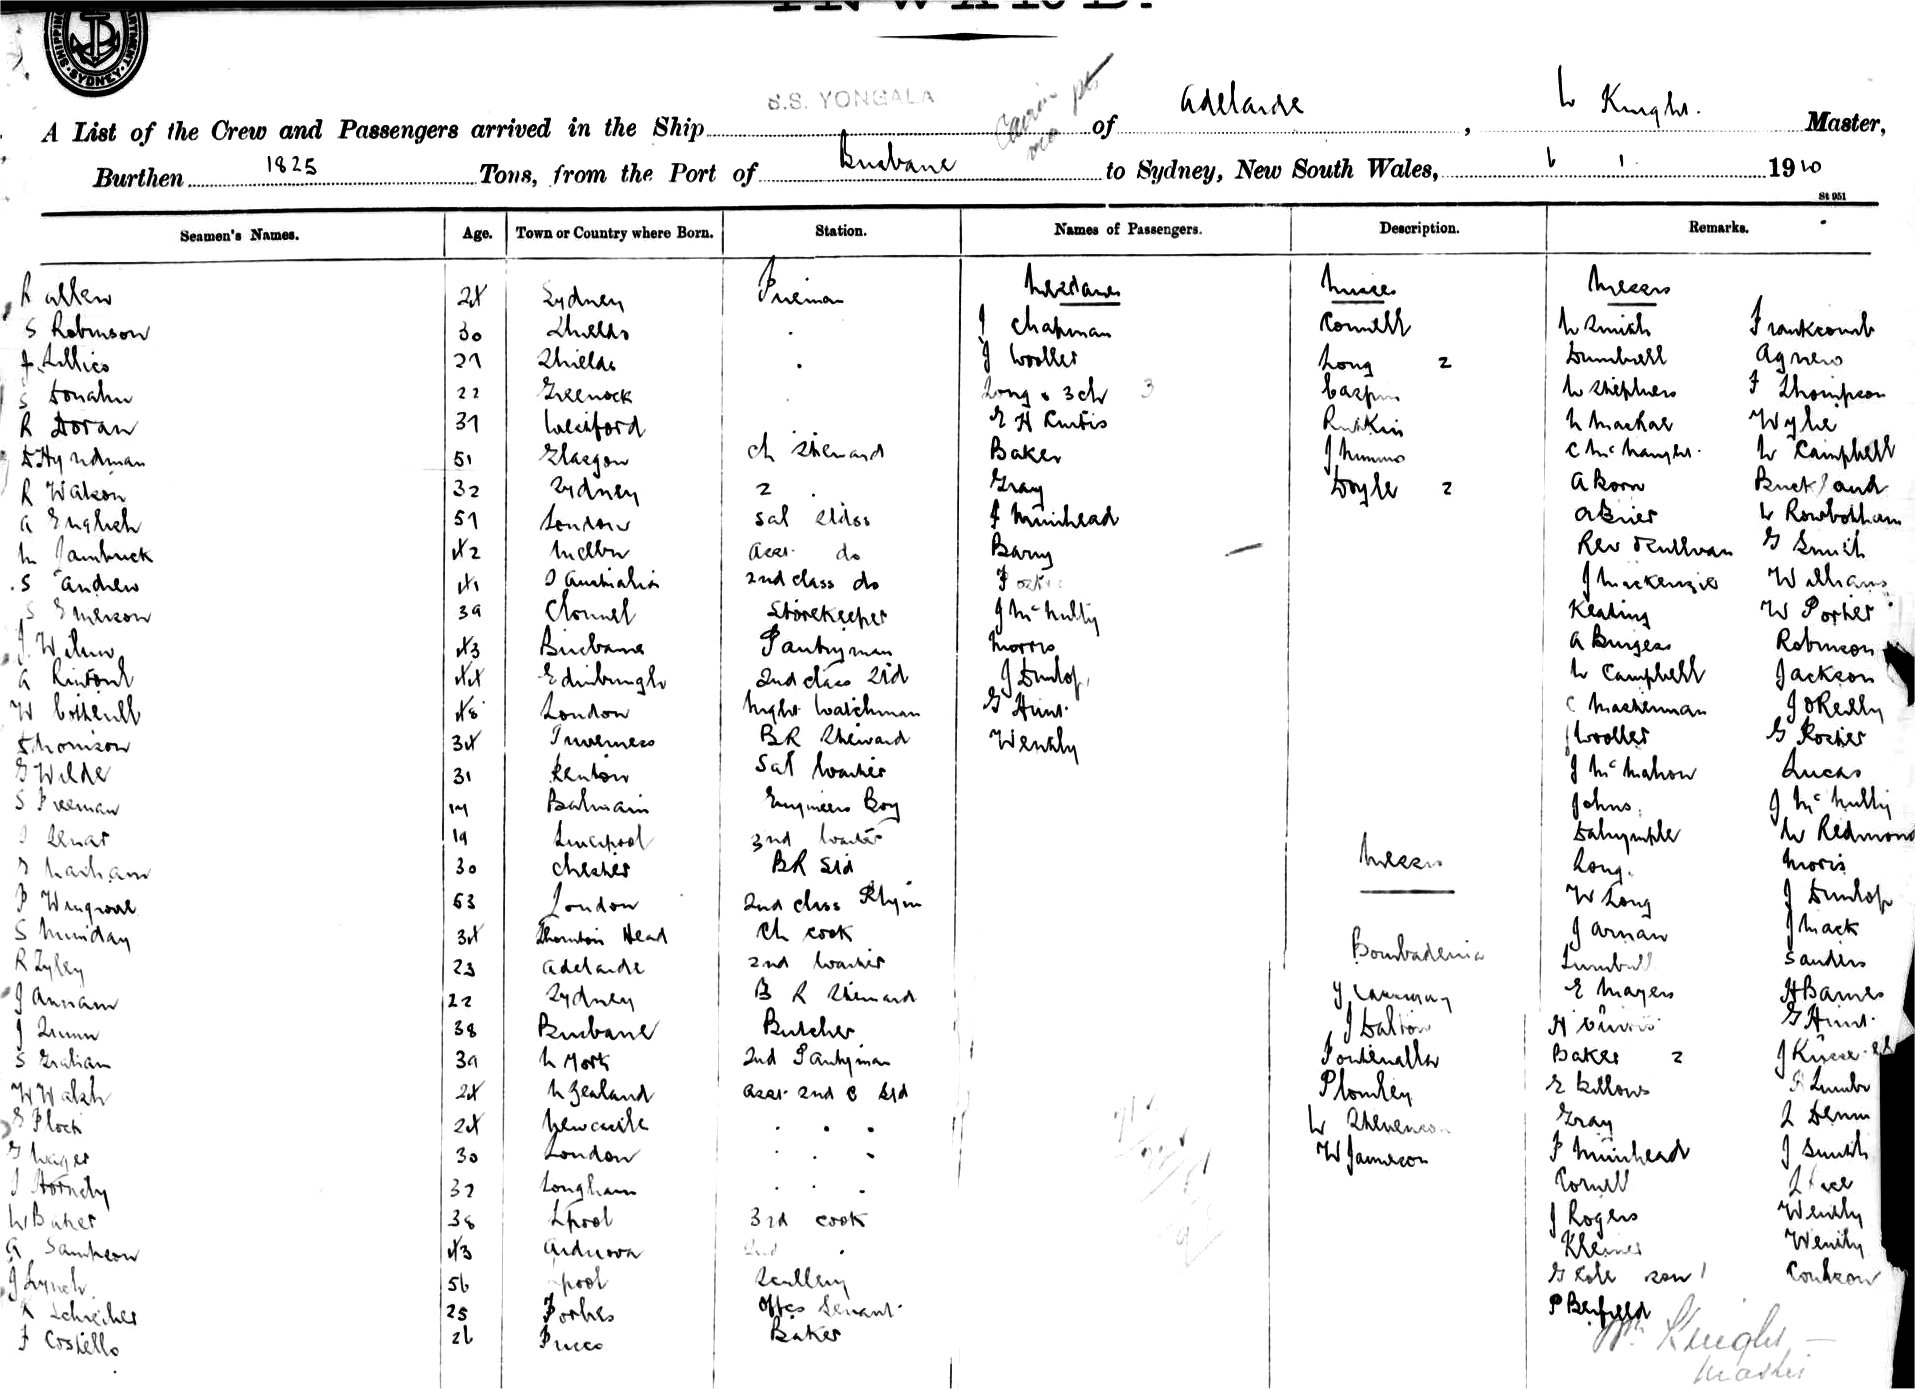 INWARD.
SYDNEY
S.S. YONGALA
Cairns pts
A List of the Crew and Passengers arrived in the Ship of Adelaide, W Knight. Master,
Burthen 1825 Tons, from the Port of Brisbane to Sydney, New South Wales, 6 1 1910
St 951
Seamen's Names. Age. Town or Country where Born. Station. Names of Passengers. Description. Remarks.
R Allen 24 Sydney Fireman Mesdames Misses Messrs
S Robinson 30 Shields J Chapman Cornell W Smith Frankcomb
27 Shields J Wooller Long 2 Dumbrell Agnew
S Donahu 22 Greenock Long & 3 ch 3 W Stephens F Thompson
R Doran 37 Wexford E H Curtis Rutkin N Mackae Wylie
D Hyndman 51 Glasgow Ch Steward Baker J Nimmo C McNaught W Campbell
R Watson 32 Sydney 2 Gray Doyle 2 A Korn Buckland
A English 57 London Sal Stdss F Muirhead A Brier W Rowbotham
42 Melbn Asst do Barry Rev O'Sullivan G Smith
S Andrew 41 S Australia 2nd class do J Mackenzie Williams
S Emerson 39 Clonmel Storekeeper J McNulty Keating W Porter
J Wilson 43 Brisbane Pantryman Morris A Burgess Robinson
A Rintoul 44 Edinburgh 2nd class Std J Dunlop W Campbell Jackson
W Cotterill 48 London Night Watchman G Hunt C Masterman J O'Reilly
Thomson 34 Inverness BR Steward Wenkly J Wooller G Rosier
G Wilde 31 Renton Sal Waiter J McMahon Lucas
S Freeman 17 Balmain Engineers Boy Johns J McNulty
19 Liverpool 3rd Waiter Dalrymple W Redmond
30 Chester BR Std Messrs Long Morris
P Wingrove 53 London 2nd class W Long J Dunlop
S Munday 34 Thornton Head Ch Cook J Arnan J Mack
R Zyley 23 Adelaide 2nd Waiter Turnbull Sanders
J Annam 22 Sydney B R Steward E Mayers H Barnes
J Quinn 38 Brisbane Butcher J Dalton G Hunt
S Graham 39 N York 2nd Pantryman Baker 2
W Walsh 24 N Zealand Asst 2nd C Std Plomley E Bellows
E Plock 24 Newcastle W Stevenson Gray
30 London W Jameson F Muirhead J Smith
J Hornby 37 Longham Cornell
W Baker 38 Lpool 3rd Cook J Rogers Wenkly
A Sampson 43 2nd
J Lynch 56 pool Scullery G Cole son 1 Coulson
R Schreiber 25 Forbes Offcs Servant P Benfield
F Costello 26 Baker
Wm Knight
Master